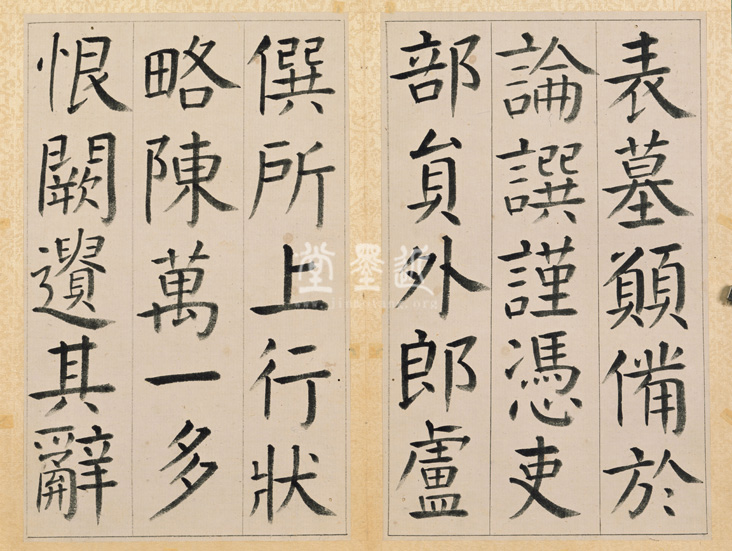 表墓顚備於
論譔謹憑吏
部貟外郎盧
僎所上行狀
略陳萬一多
恨闕遺其辭